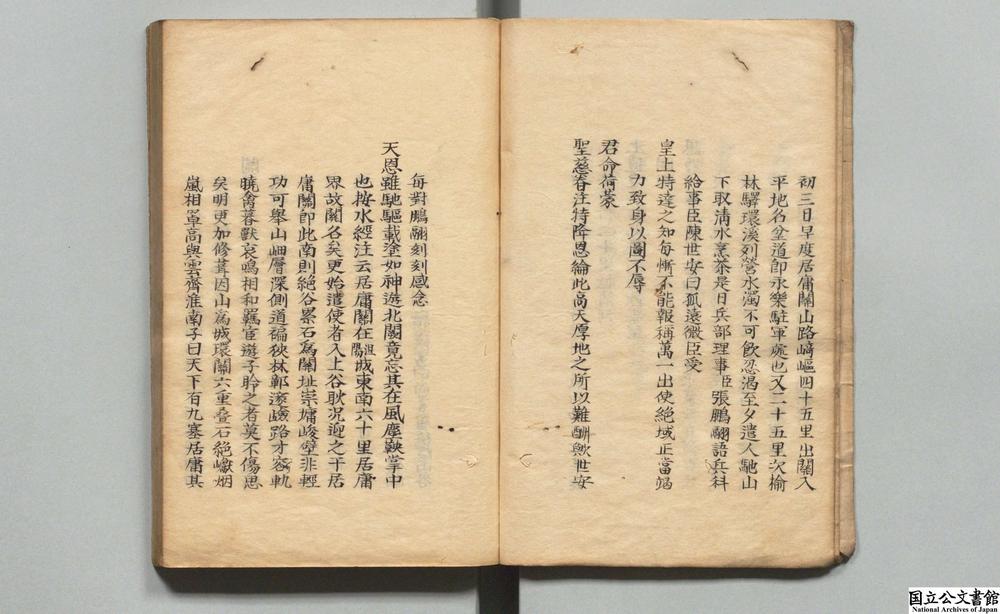 初三日早度居庸關山路﨑嶇四十五里出關入
平地名岔道即永樂駐軍處也又二十五里次榆
林驛環溪列營水濁不可飲忍渴至夕遣人馳山
下取清水烹茶是日兵部理事臣張鵬翮語兵科
給事臣陳世安曰孤遠微臣受
皇上特達之知每慚不能報稱萬一出使絕域正當竭
力致身以圖不辱
君命荷蒙
聖慈眷注特降恩綸此高天厚地之所以難酬歟世安
每對鵬翮刻刻感念
天恩雖馳驅載塗如神遊北闕竟忘其在風塵鞅掌中
也按水經注云居庸關在沮陽城東南六十里居庸
界故關名矣更始遣使者入上谷耿况迎之于居
庸關即此南則絕谷累石為關址崇墉峻壁非輕
功可舉山岫層深側道褊狹林鄣邃險路才容軌
曉禽暮獸哀鳴相和羈宦遊子聆之者莫不傷思
矣明更加修葺因山為城環關六重疊石絕巘烟
嵐相罩高與雲齊淮南子曰天下有九塞居庸其
国立公文書館
National Archives of Japan